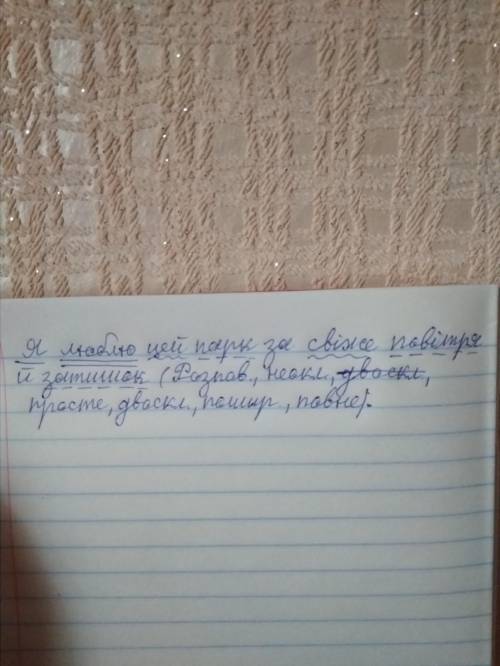 Я люблю цей парк за свіже повітря
й затишок (Розпов., неокл, двоскл,
просте, двоскл, пошир, повне).